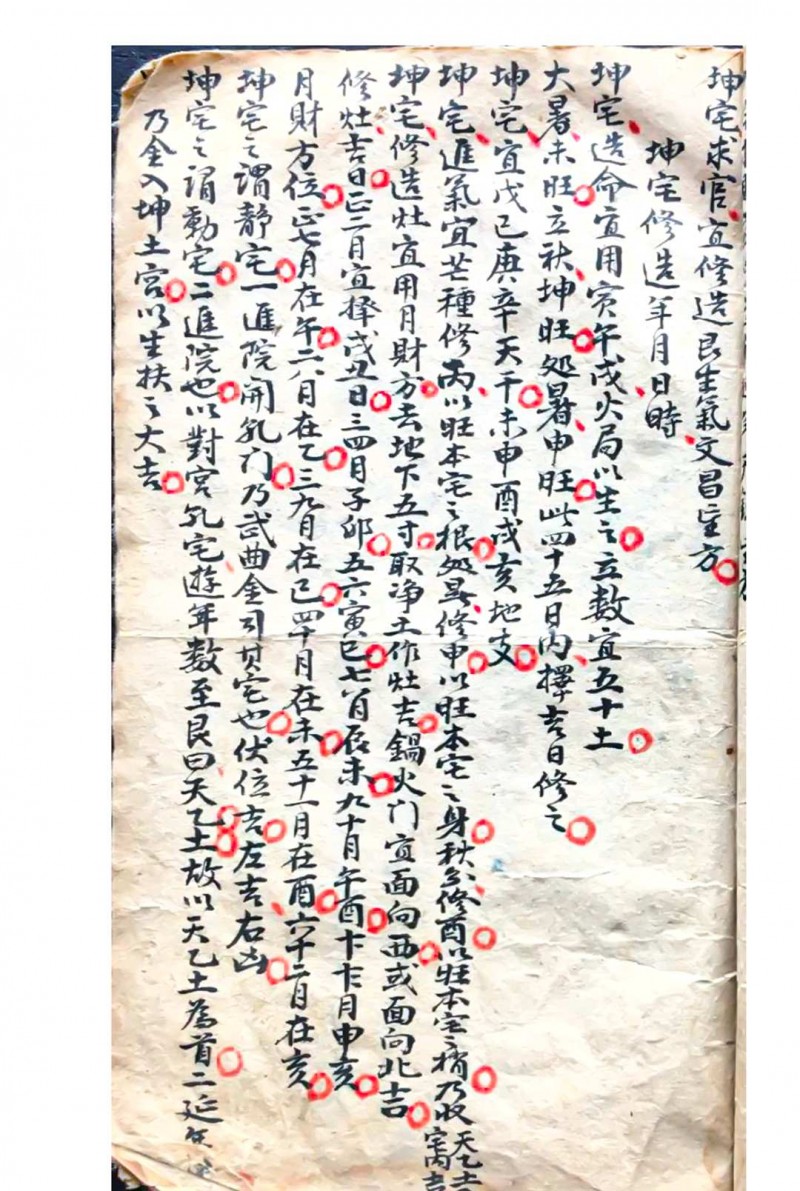 坤宅求官宜修造艮生氣文昌方
坤宅修造年月日時
坤宅造命宜用寅午戌火局以生之立數宜五十土
大暑未旺立秋坤旺処暑申旺此四十五日内擇吉日修之
坤宅宜戊己庚辛天干未申酉戌亥地支
坤宅進氣宜芒種修丙以旺本宅之根処暑修申以旺本宅之身秋分修酉以旺本宅之梢乃收
坤宅修造灶宜用月財方去地下五寸取净土作灶吉鍋火门宜面向西或面向北吉
修灶吉日正二月宜择戌丑日三四月子卯五六寅巳七八月辰未九十月午酉十一十二月申亥
月財方位正七月在午二八月在乙三九月在巳四十月在未五十一月在酉六十二月在亥
坤宅之謂靜宅一進院開乹门乃武曲金引其宅也伏位吉左吉右凶
坤宅之謂動宅二進院也以對宮乹宅遊年数至艮曰天乙土故以天乙土為首二延年
乃金入坤土宮以生扶之大吉